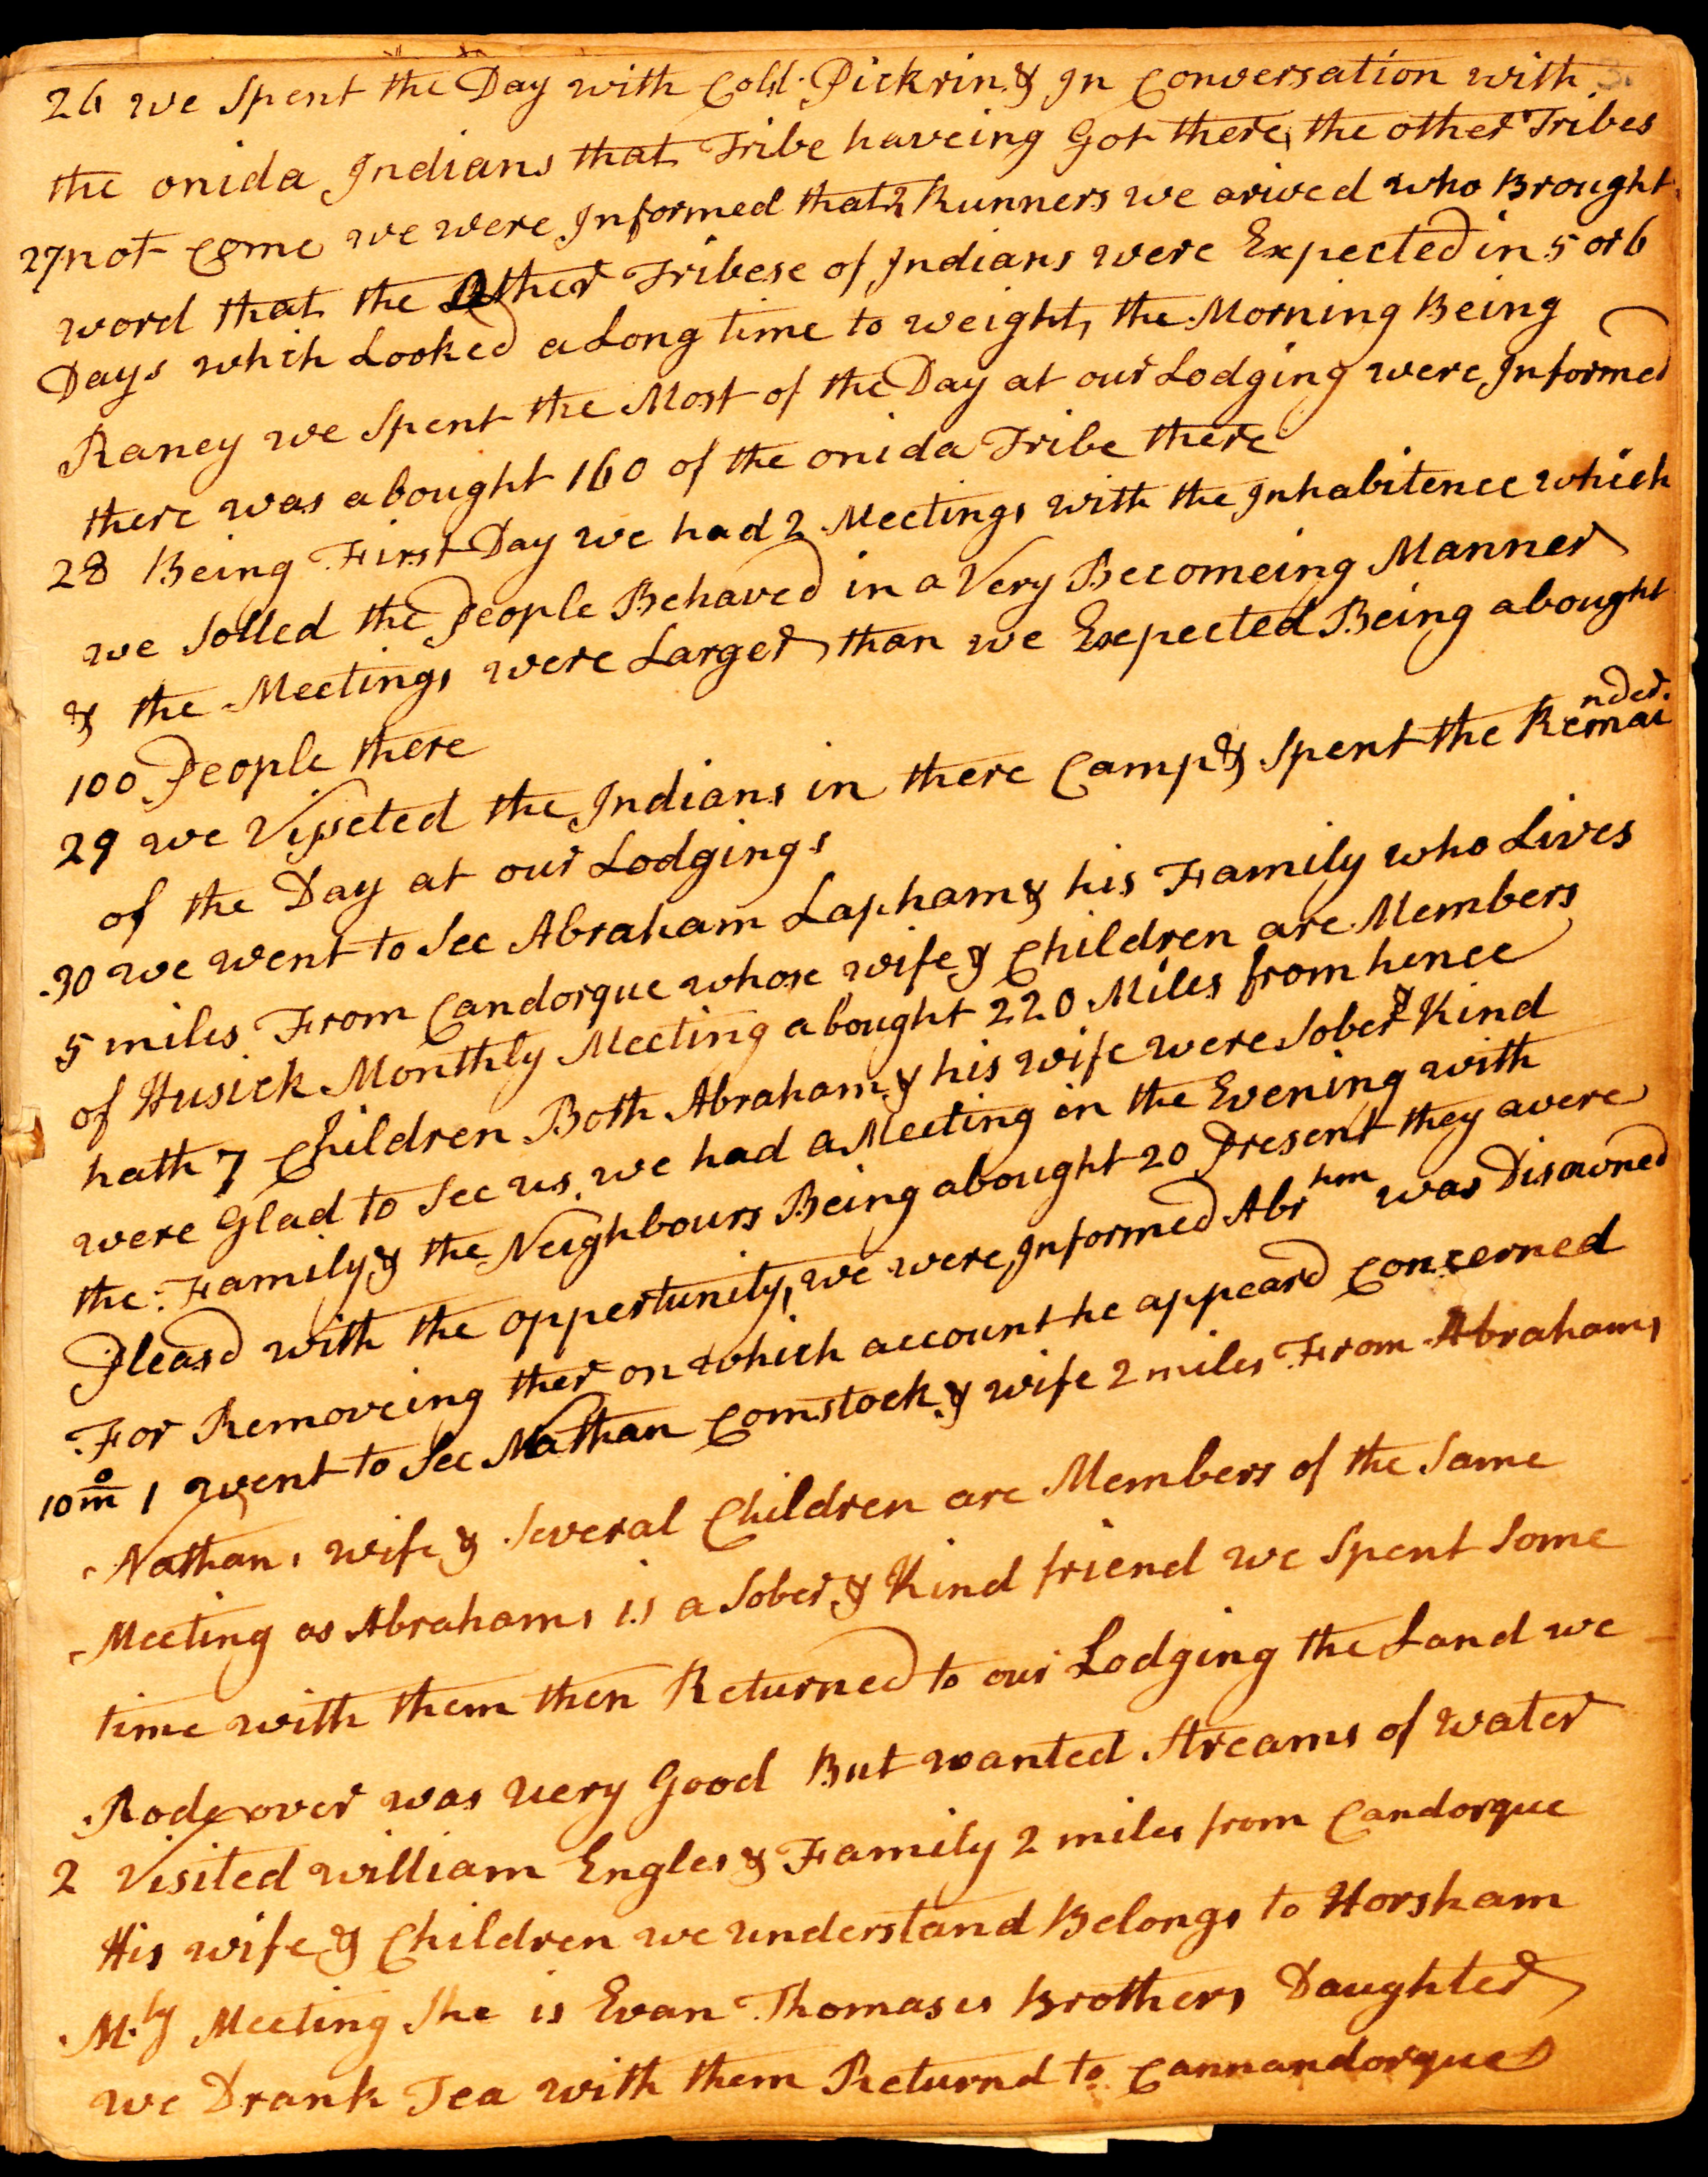 26 we Spent the Day with Coll. Pickrin & In Conversation with
the onida Indians that Tribe haveing Got there, the other Tribes
27 not Come we were Informed that 2 Runners we arived who Brought
word that the Other Tribese of Indians were Expected in 5 or 6
Days which Looked a Long time to weight, the Morning Being
Raney we Spent the Most of the Day at our Lodging were Informed
there was abought 160 of the onida Tribe there
28 Being First Day we had 2 Meetings with the Inhabitence which
we Solled the People Behaved in a Very Becomeing Manner
& the Meetings were Larger than we Expected Being abought
100 People there
29 we Visseted the Indians in there Camp & Spent the Remainder
of the Day at our Lodgings
30 we went to See Abraham Lapham & his Family who Lives
5 miles From Candorque whose wife & Children are Members
of Husick Monthly Meeting abought 220 Miles from hence
hath 7 Children Both Abraham & his wife were Sober & Kind
were Glad to See us, we had a Meeting in the Evening with
the Family & the Neighbours Being abought 20 Present they were
Pleasd with the oppertunity, we were Informed Abrhm was Disowned
For Removeing ther on which account he appeard Concerned
10 mo 1 went to See Nathan Comstock & wife 2 miles From Abrahams
Nathans wife & Several Children are Members of the Same
Meeting as Abrahams is a Sober & Kind friend we Spent Some
time with them then Returned to our Lodging the Land we
Rode over was very Good But wanted Streams of water
2 Visited william Engles & Family 2 miles from Candorque
His wife & Children we understand Belongs to Horsham
M.ly Meeting She is Evan Thomases Brothers Daughter
we Drank Tea with them Returnd to Cannandorque